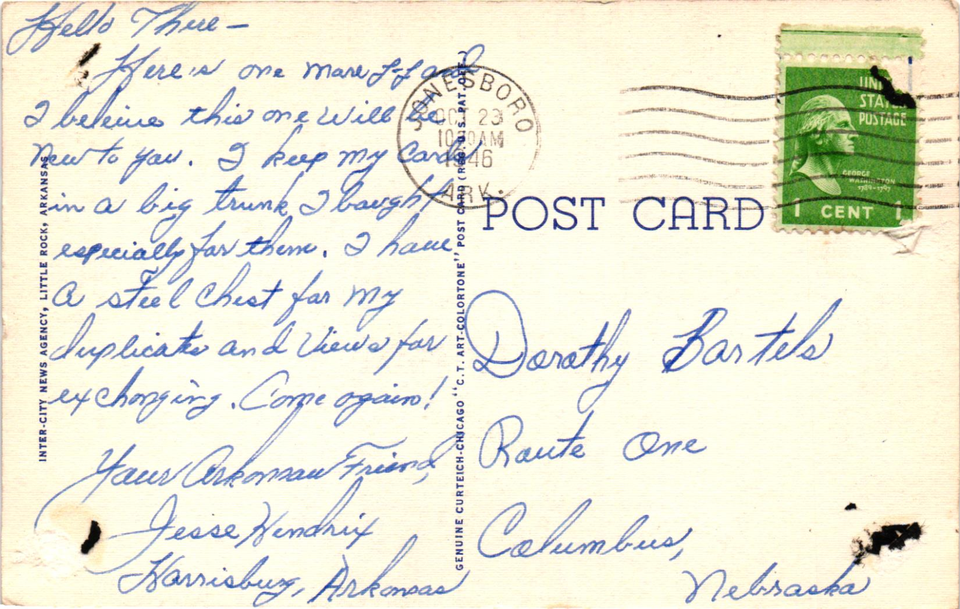 Hello There—
Here is one more L-L and
I beleive this one will be
new to you. I keep my cards
in a big trunk I bought
especially for them. I have
a steel chest for my
duplicates and views for
exchanging. Come again!
Your Arkansaw Friend,
Jesse Hendrix
Harrisburg, Arkansas
INTER-CITY NEWS AGENCY, LITTLE ROCK, ARKANSAS
GENUINE CURTEICH-CHICAGO "C.T. ART-COLORTONE" POST CARD (REG. U.S. PAT. OFF.)
JONESBORO
OCT 23
1946
ARK.
UNITED
STATES
POSTAGE
GEORGE
WASHINGTON
1789-1797
1 CENT 1
POST CARD
Dorothy Bartels
Route One
Columbus,
Nebraska